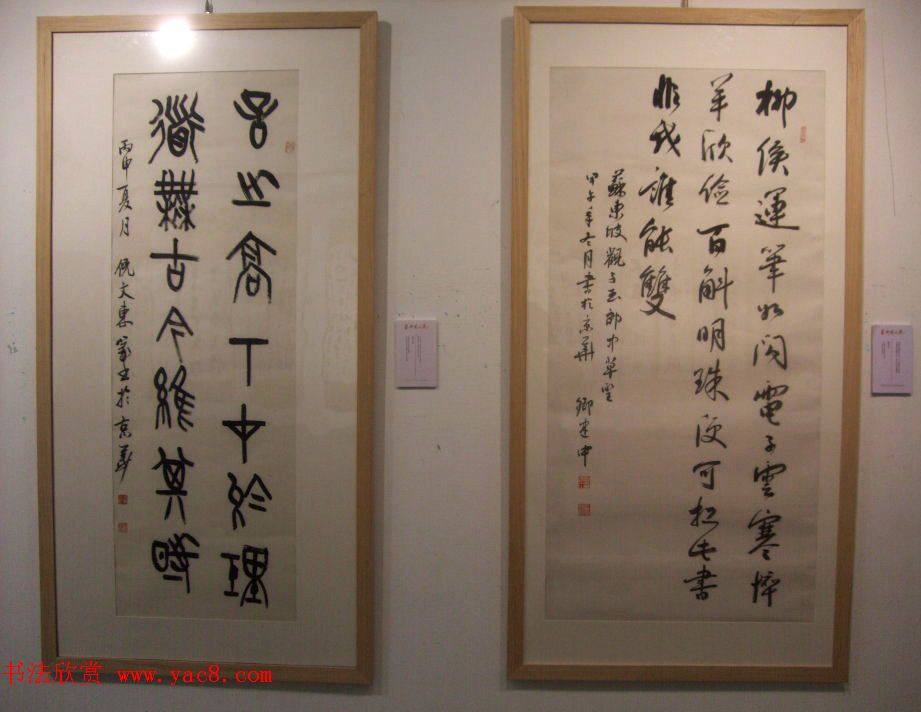 言之高下在於理
道無古今維其時
丙申夏月 倪文東篆書於京華
柳侯運筆如閃電子雲寒悴
羊欣儉百斛明珠便可扛此書
非我誰能雙
蘇東坡觀子玉郎中草聖
甲午年冬月書於京華 卿建中
书法欣赏 www.yac8.com